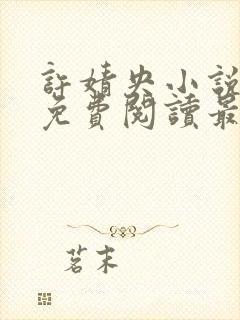 許婧央小說
免費閱讀最
茗末